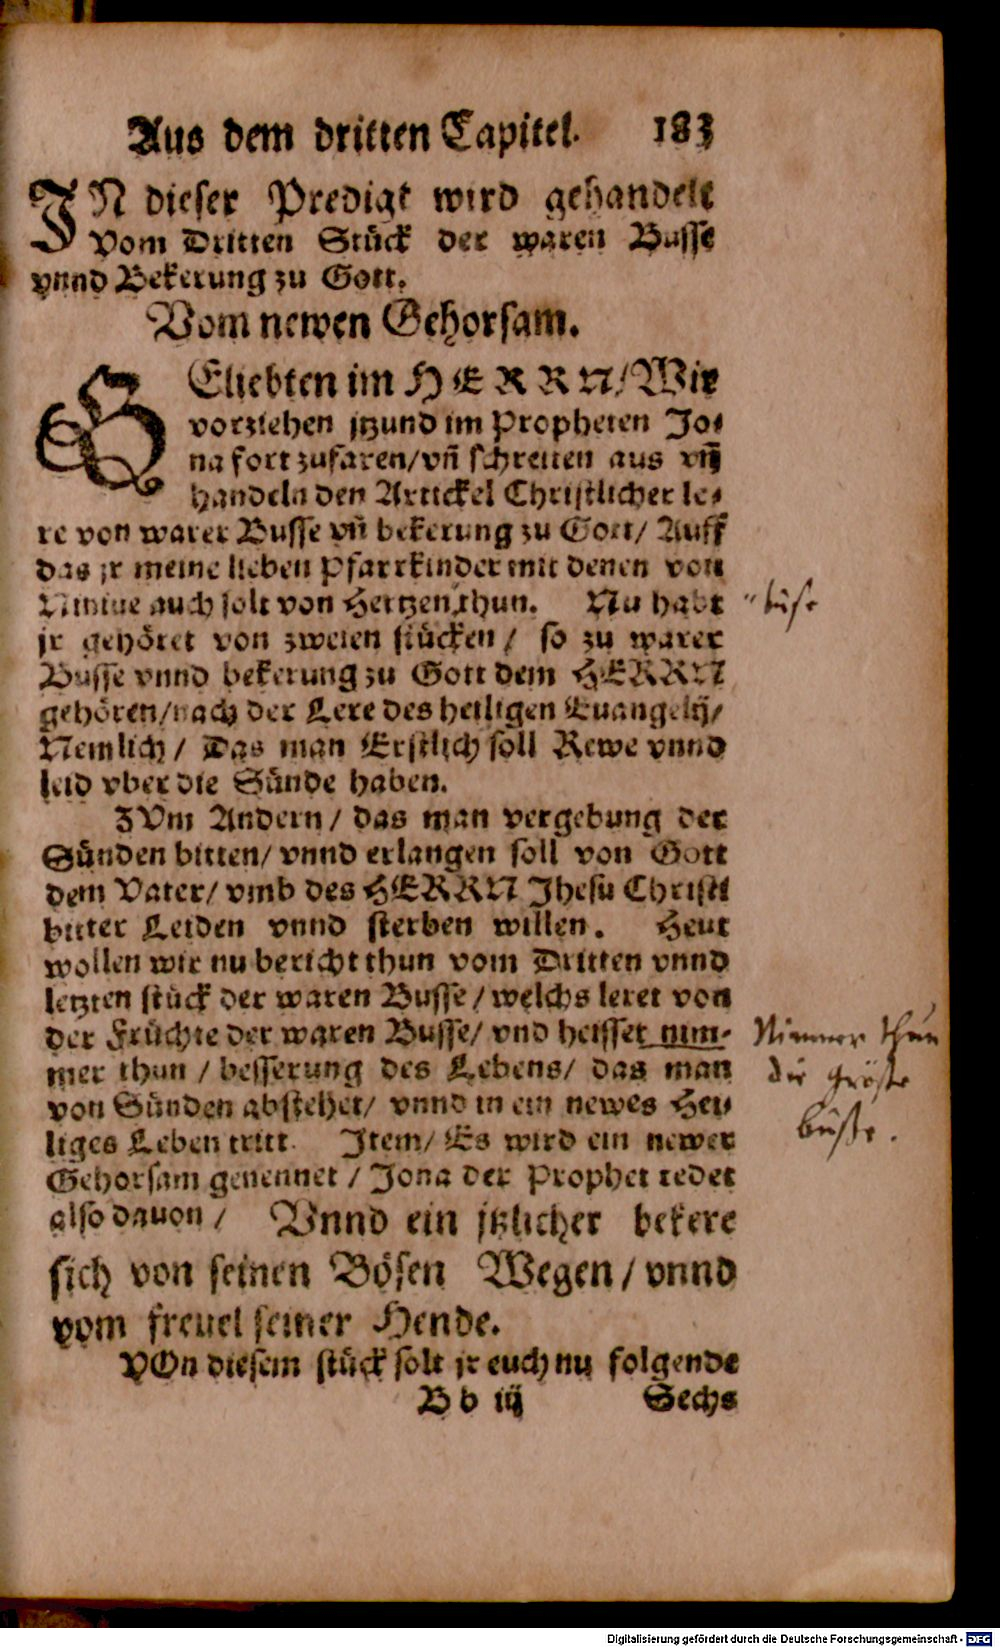 Aus dem dritten Capitel. 183
IN dieser Predigt wird gehandelt
vom Dritten Stück der waren Busse
vnnd Bekerung zu Gott.
Vom newen Gehorsam.
GEliebten im HERRN/ Wir
vorziehen jtzund im Propheten Jo-
na fort zufaren/ vñ schreiten aus vñ
handeln den Artickel Christlicher le-
re von warer Busse vñ bekerung zu Gott/ Auff
das jr meine lieben Pfarrkinder mit denen von
Niniue auch solt von Hertzen thun. Nu habt
jr gehöret von zweien stücken / so zu warer
Busse vnnd bekerung zu Gott dem HERRN
gehören/ nach der Lere des heiligen Euangelij/
Nemlich / Das man Erstlich soll Rewe vnnd
leid vber die Sünde haben.
ZVm Andern / das man vergebung der
Sünden bitten/ vnnd erlangen soll von Gott
dem Vater/ vmb des HERRN Jhesu Christi
bitter Leiden vnnd sterben willen. Heut
wollen wir nu bericht thun vom Dritten vnnd
letzten stück der waren Busse / welchs leret von
der Früchte der waren Busse/ vnd heisset nim-
mer thun / besserung des Lebens/ das man
von Sünden abstehet/ vnnd in ein newes Hei-
liges Leben tritt. Item/ Es wird ein newer
Gehorsam genennet / Jona der Prophet redet
also dauon / Vnnd ein jtzlicher bekere
sich von seinen Bösen Wegen / vnnd
vom freuel seiner Hende.
VOn diesem stück solt jr euch nu folgende
B b iij Sechs
buse
Nimmer thun
die gröste
busse.
Digitalisierung gefördert durch die Deutsche Forschungsgemeinschaft - DFG